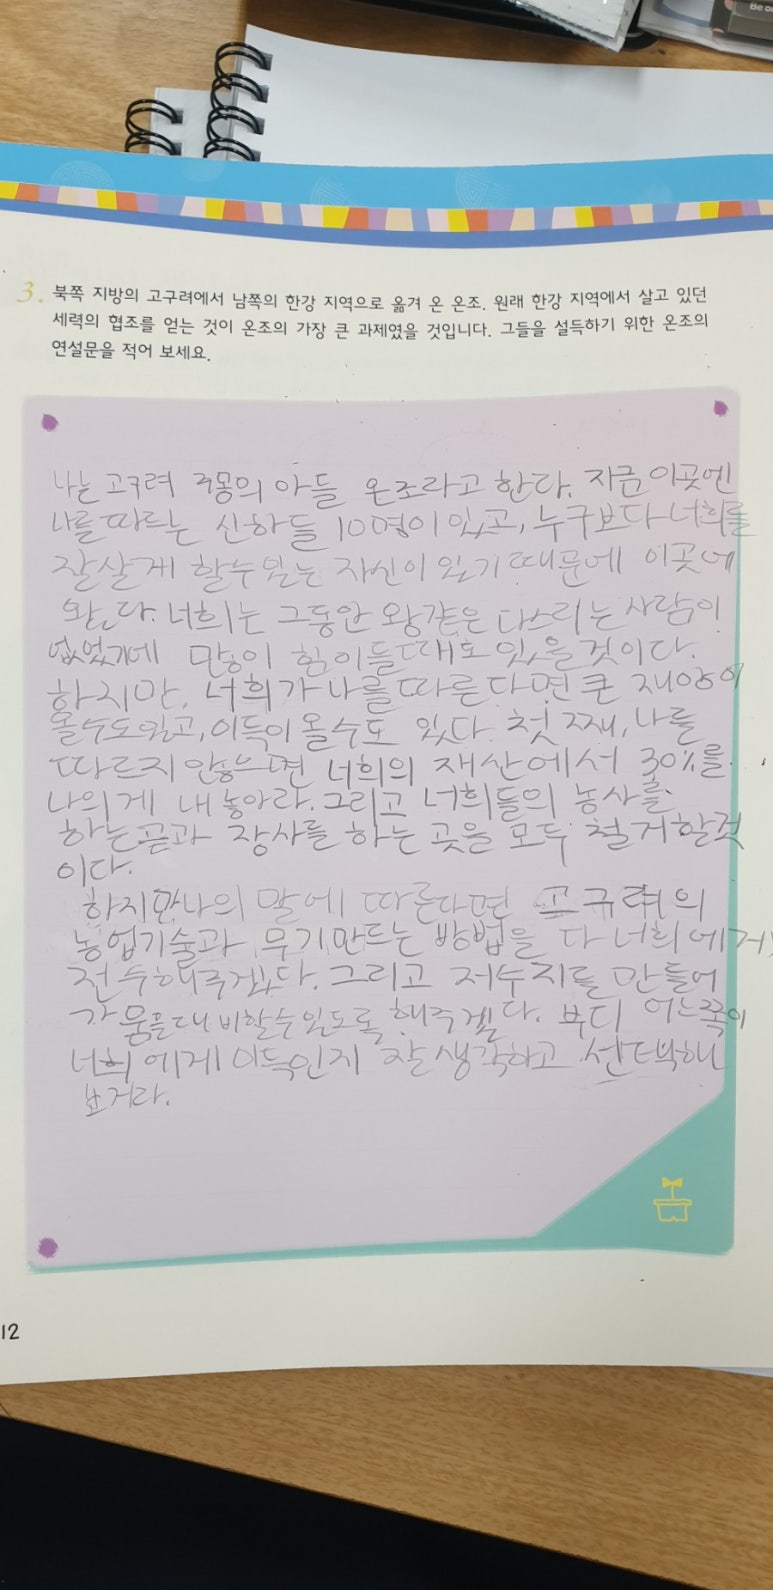 Be
3. 북쪽 지방의 고구려에서 남쪽의 한강 지역으로 옮겨 온 온조. 원래 한강 지역에서 살고 있던
세력의 협조를 얻는 것이 온조의 가장 큰 과제였을 것입니다. 그들을 설득하기 위한 온조의
연설문을 적어 보세요.
나는 고구려 주몽의 아들 온조라고 한다. 지금 이곳엔
나를 따르는 신하들 10명이 있고, 누구보다 너희를
잘살게 할수 있는 자신이 있기 때문에 이곳에
왔다. 너희는 그동안 왕같은 다스리는 사람이
없었기에 많이 힘이들때도 있을것이다.
하지만, 너희가 나를 따른다면 큰 재앙이
올수도있고, 이득이 올수도 있다. 첫째, 나를
따르지 않으면 너희의 재산에서 30%를
나의게 내놓아라. 그리고 너희들의 농사를
하는곧과 장사를 하는 곳을 모두 철거할것
이다.
하지만나의 말에 따른다면 고구려의
농업기술과 무기만드는 방법을 다 너희에게
전수해주겠다. 그리고 저수지를 만들어
가뭄을대비할수있도록 해주겠다. 부디 어느쪽이
너희에게 이득인지 잘 생각하고 선택해
보거라.
12